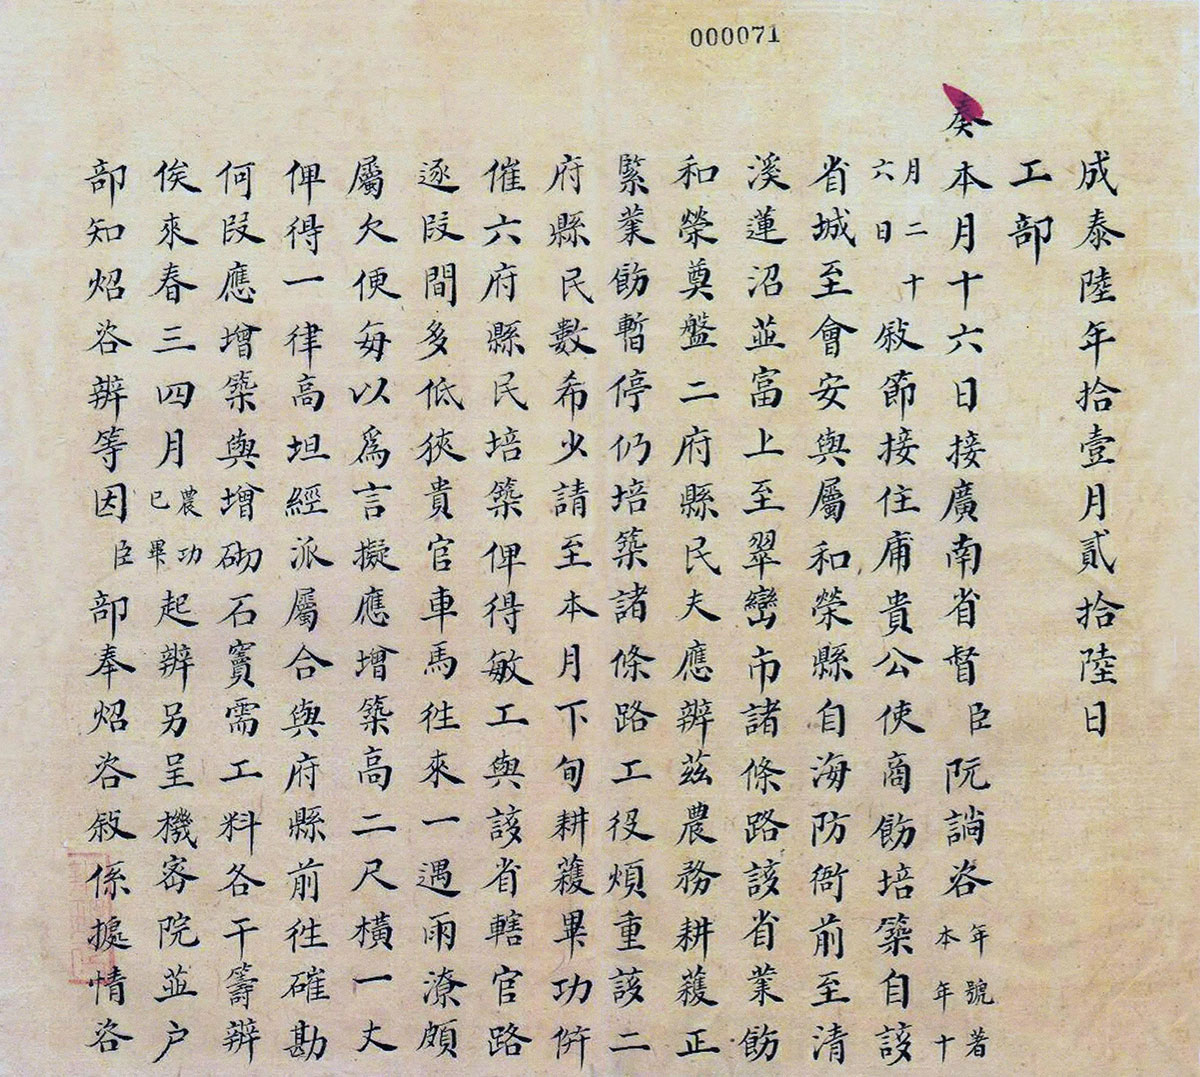 000071
成泰陸年拾壹月貳拾陸日
工部
奏本月十六日接廣南省督臣阮咨年號著本年十
月二十六日敍節接住庯貴公使商飭培築自該
省城至會安與屬和榮縣自海防衙前至清
溪蓮沼並富上至翠巒市諸條路該省業飭
和榮奠盤二府縣民夫應辨茲農務耕穫正
緊業飭暫停仍培築諸條路工役煩重該二
府縣民數希少請至本月下旬耕穫畢功倂
催六府縣民培築俾得敏工與該省轄官路
逐段間多低狹貴官車馬徃來一遇雨潦頗
屬欠便每以爲言擬應增築高二尺橫一丈
俾得一律高坦經派屬合與府縣前徃確勘
何段應增築與增砌石竇需工料各干籌辨
俟來春三四月農功已畢起辨另呈機密院並户
部知炤咨辨等因臣部奉炤咨敍係據情咨